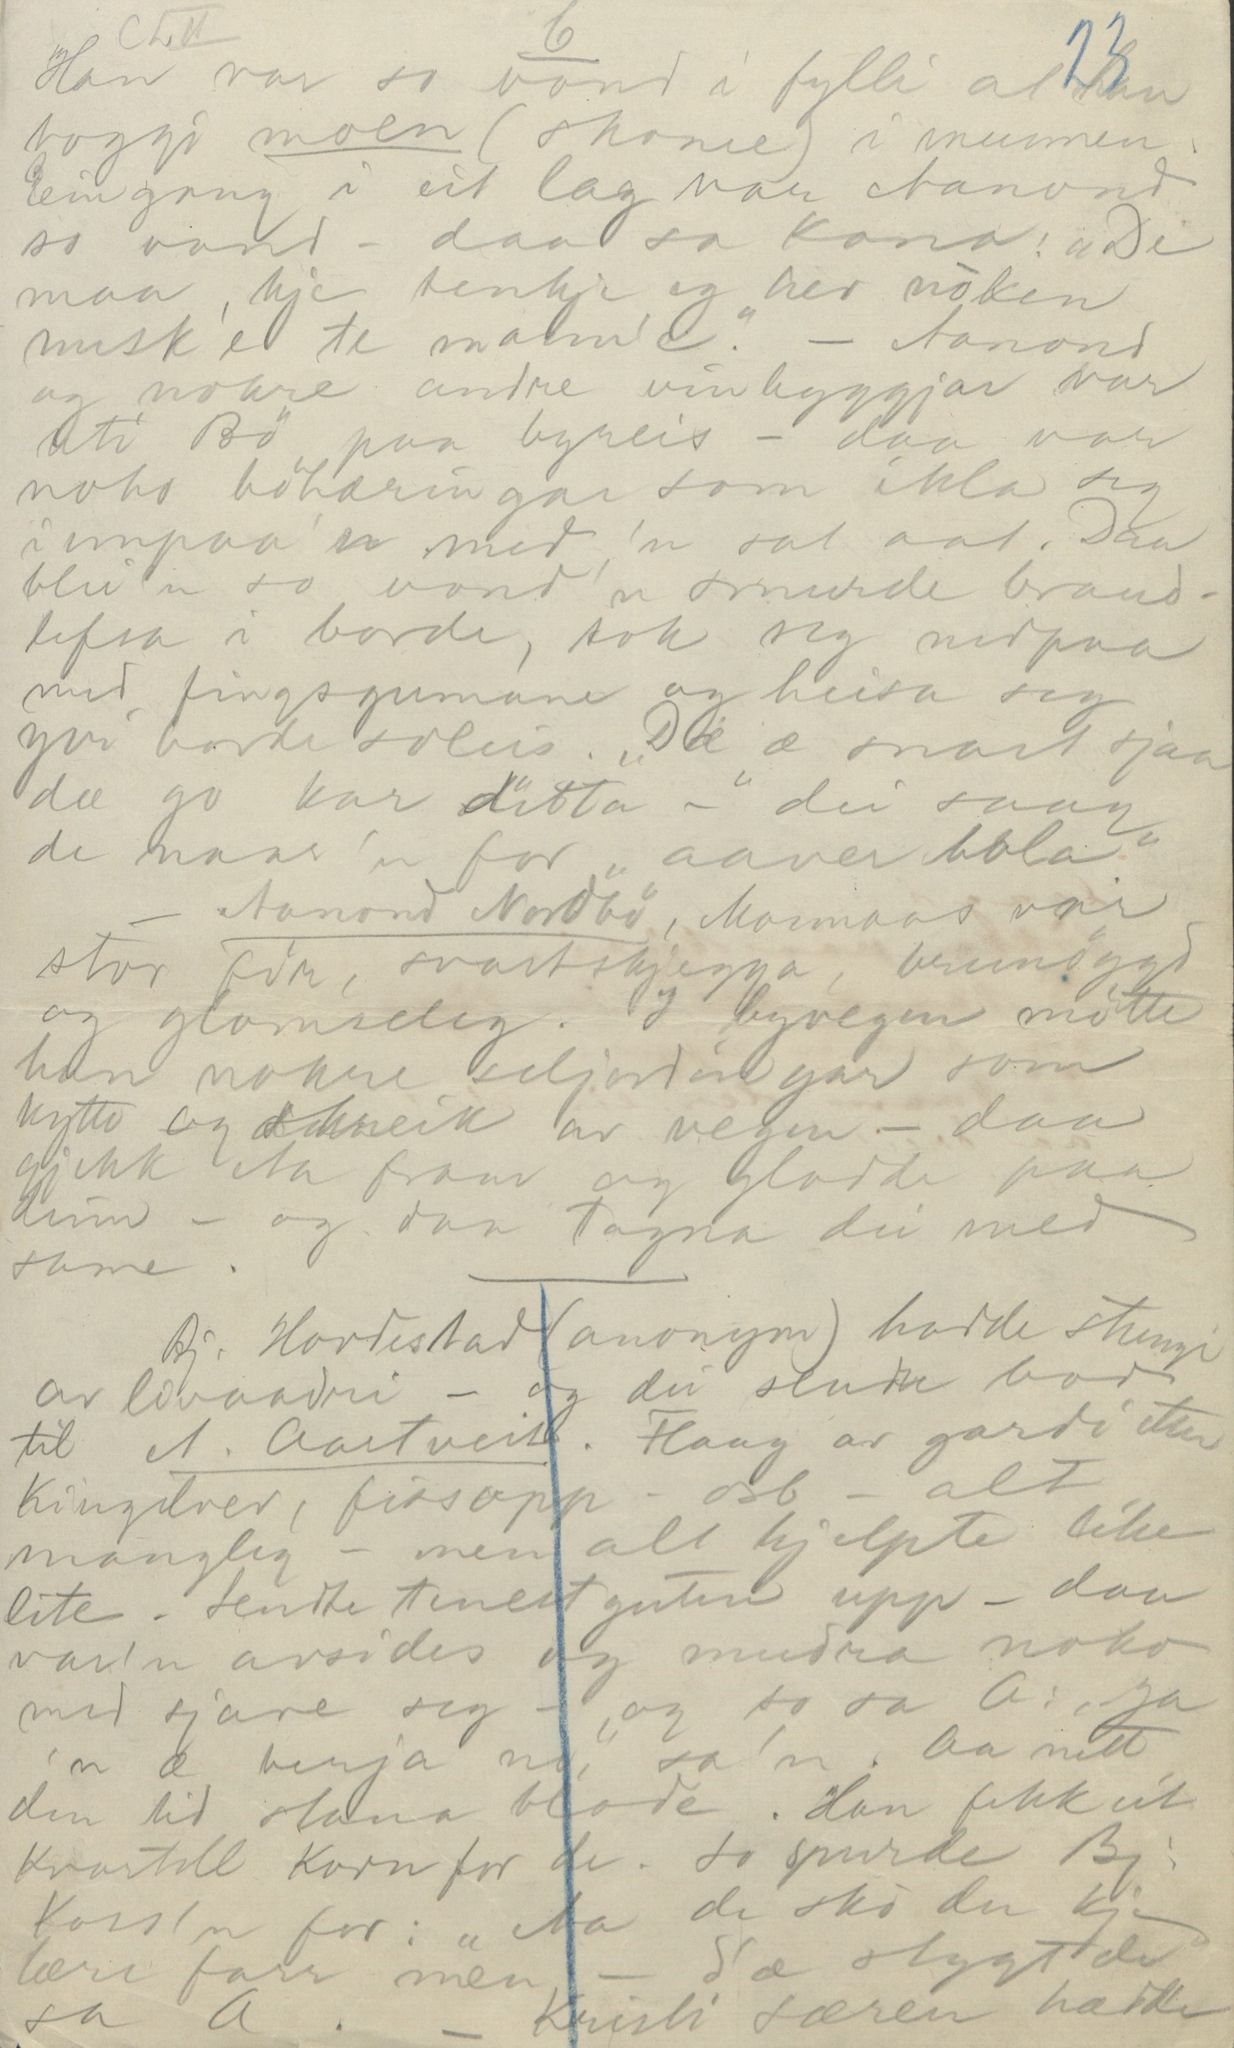 6
23
Han var so vond i fylli at han
toggi moen (skone) i munnen.
Eingong i eit lag var Aanond
so vond - daa sa kona: "Di
maa 'kje tenkje eg her nöken
musk'e te mann'e." - Aanond
og nokre andre vinbyggjar var
uti Bö paa byreis - daa var
noko böhæringar som ikla seg
innpaa'n med 'n sat aat. Daa
blei'n so vond 'n smurde braud-
lefsa i borde, tok seg nedpaa
med fingsgumane og heisa seg
yvi borde soleis. "Dæ æ snart sjaa
dæ go kar ditta -" dei saag
de naar'n for "aaver bola"
- Aanond Nordbö, Mormoas var
stor för, svartskjegga, brunöygd
og glomseleg. I byvegen mötte
han nokre seljordingar som
kytte og skreik av vegen - daa
gjekk Aa fram og glodde paa
deim - og daa tagna dei med
same.
Bj. Hordestad (anonym) hadde stungi
av livaadri - og dei sendte bod
til A. Aartveit. Flaug av gardi etter
Kingelvev, fissopp - osb - alt
mangleg - men alt hjelpte like
lite. Sendte tenestguten upp - daa
var'n avsides og mudra noko
med sjave seg - og so sa A: "ja
'n æ berja no," sa'n. Aa nett
den tid stana blode. Han fekk eit
kvartell korn for de. So spurde Bj:
Koss'n for: "Aa de sko du kje
lære farr men - d'æ stygt de
sa A. - Kristi særen hadde